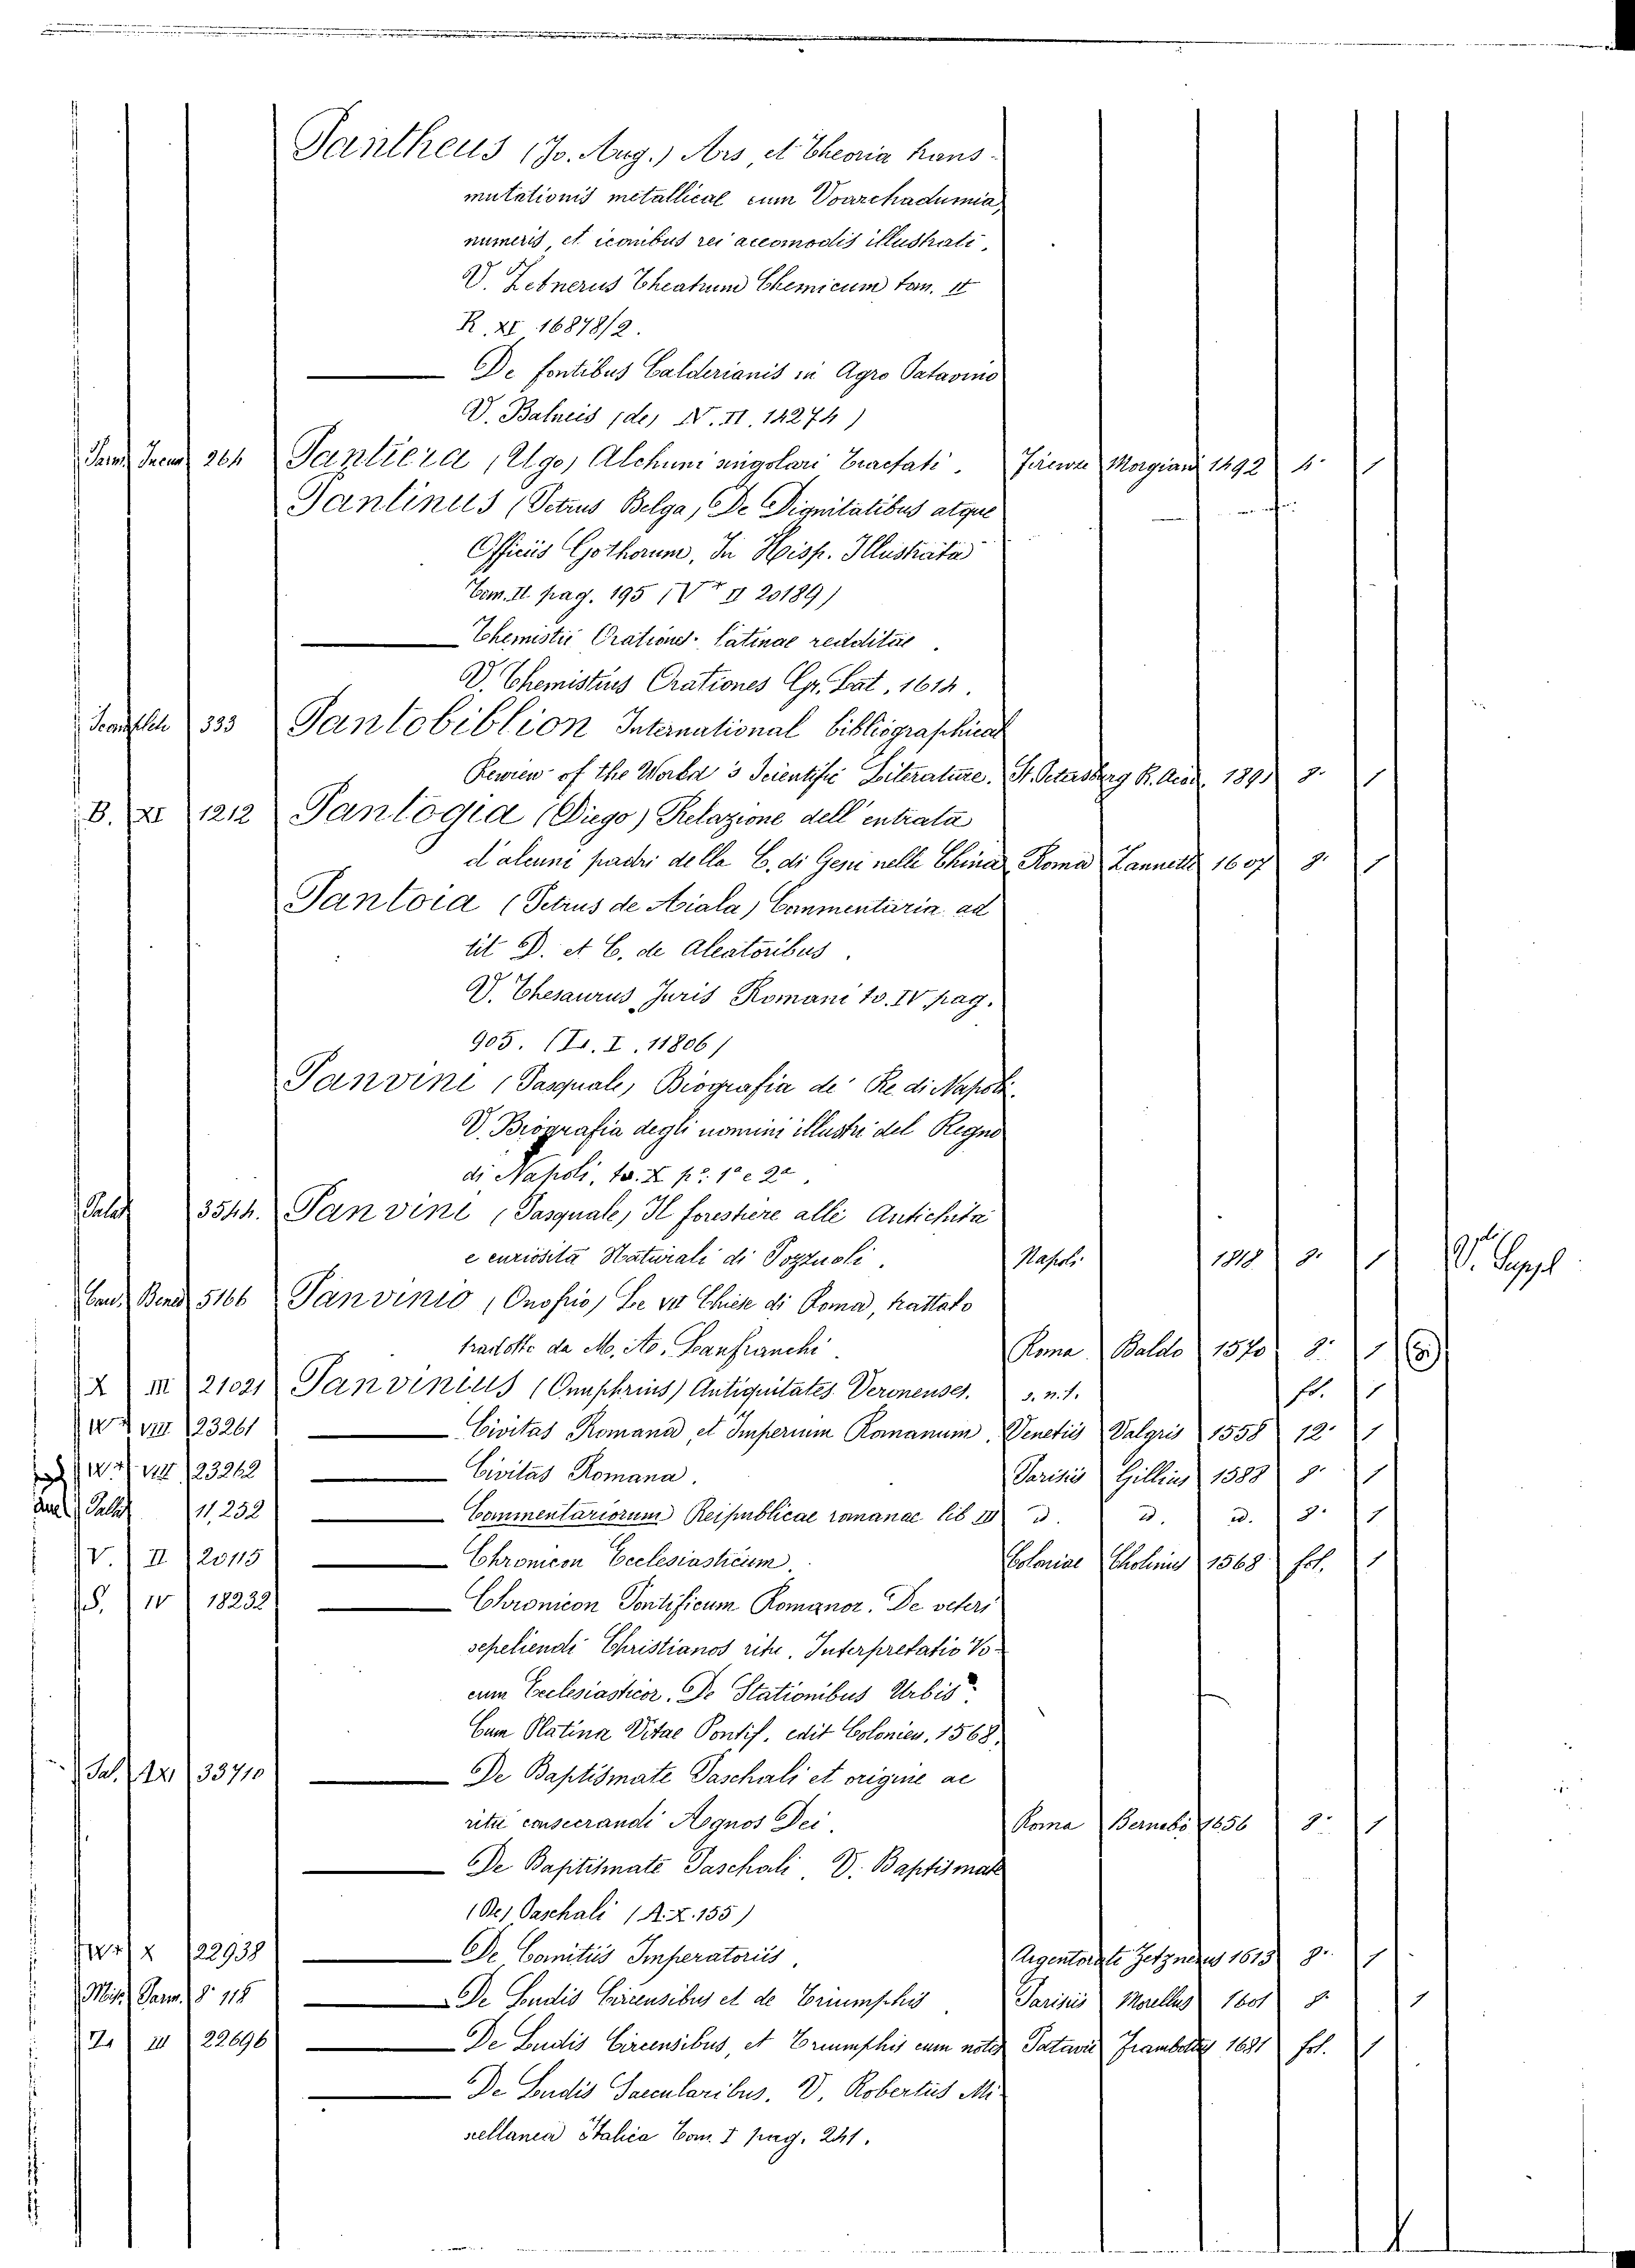 Pantheus (Jo. Aug.) Ars et Theoria trans-
mutationis metallicae cum Voarchadumia,
numeris, et iconibus rei accomodis illustrati.
V. Zetnerus Theatrum Chemicum tom. II
R. XI 16878/2.
— De fontibus Calderianis in Agro Patavino
V. Balneis (de) N. II. 14274)
Parm Incun 264 Pantiera (Ugo) Alchuni singolari Tractati. Firenze Morgiani 1492 4° 1
Pantinus (Petrus Belga) De Dignitatibus atque
Officiis Gothorum, In Hisp. Illustrata
Tom. II. pag. 195 (V* II 20189)
— Themistii Orationes Latinae redditae.
V. Themistius Orationes Gr. Lat. 1614.
333 Pantobiblion International bibliographical
Rewiew of the World's Scientific Literature. St. Petersberg R. Acad. 1891 8° 1
B. XI 1212 Pantogia (Diego) Relazione dell'entrata
d'alcuni padri della C. di Gesù nella China Roma Zannetti 1607 8° 1
Pantoia (Petrus de Aiala) Commentaria ad
tit D. et C. de Aleatoribus.
V. Thesaurus Juris Romani to. IV pag.
905. (L. I. 11806)
Panvini (Pasquale) Biografia de' Re di Napoli.
V. Biografia degli uomini illustri del Regno
di Napoli, to. X pe. 1a e 2a.
Palat 3544. Panvini (Pasquale) Il forestiere alle Antichità
e curiosità Naturali di Pozzuoli. Napoli 1818 8° 1 V. Suppl
Can. Bened 5166 Panvinio (Onofrio) Le VII Chiese di Roma, trattato
tradotto da M. Ao. Lanfranchi. Roma Baldo 1570 8° 1 (8°)
X III 21021 Panvinius (Onuphrius) Antiquitates Veronenses. s. n. t. fo. 1
W* VIII 23261 — Civitas Romana, et Imperium Romanum. Venetiis Valgris 1558 12° 1
W* VIII 23262 — Civitas Romana. Parisiis Gillius 1588 8° 1
Palat 11,232 — Commentariorum Reipublicae romanae lib III d. d. d. 8° 1
V. II 20115 — Chronicon Ecclesiasticum. Coloniae Cholinus 1568 fol. 1
S. IV 18232 — Chronicon Pontificum Romanor. De veteri
sepeliendi Christianos ritu. Interpretatio Vo-
cum Ecclesiasticor. De Stationibus Urbis.
Cum Platina Vitae Pontif. edit Colonien. 1568.
Sal. XXI 33710 — De Baptismate Paschali et origine ac
ritu consecrandi Agnos Dei. Roma Bernabò 1656 8° 1
— De Baptismate Paschali. V. Baptismate
(De) Paschali (A. X. 155)
W* X 22938 — De Comitiis Imperatoriis. Argentorati Zetznerus 1613 8° 1
Misc. Parm. 8° 118 — De Ludis Circensibus et de Triumphis Parisiis Morellus 1601 8° 1
Za III 22696 — De Ludis Circensibus, et Triumphis cum notis Patavii Frambottus 1681 fol. 1
— De Ludis Saecularibus. V. Robertus Mi-
scellanea Italica Tom. I pag. 241.